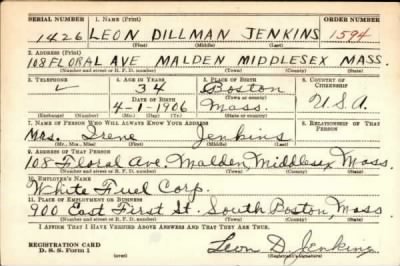 SERIAL NUMBER 1. NAME (Print) ORDER NUMBER
1426 LEON DILLMAN JENKINS 1594
(First) (Middle) (Last)
2. ADDRESS (Print)
108 FLORAL AVE MALDEN MIDDLESEX MASS.
(Number and street or R. F. D. number) (Town) (County) (State)
3. TELEPHONE 4. AGE IN YEARS 5. PLACE OF BIRTH 6. COUNTRY OF CITIZENSHIP
34 Boston
DATE OF BIRTH (Town or county)
4-1-1906 Mass. U.S.A.
(Mo.) (Day) (Yr.) (State or country)
7. NAME OF PERSON WHO WILL ALWAYS KNOW YOUR ADDRESS 8. RELATIONSHIP OF THAT PERSON
Mrs. Irene Jenkins
(Mr., Mrs., Miss) (First) (Middle) (Last)
9. ADDRESS OF THAT PERSON
108 Floral Ave Malden, Middlesex Mass.
(Number and street or R. F. D. number) (Town) (County) (State)
10. EMPLOYER'S NAME
White Fuel Corp.
11. PLACE OF EMPLOYMENT OR BUSINESS
900 East First St. South Boston, Mass
(Number and street or R. F. D. number) (Town) (County) (State)
I AFFIRM THAT I HAVE VERIFIED ABOVE ANSWERS AND THAT THEY ARE TRUE.
REGISTRATION CARD
D. S. S. Form 1 Leon D. Jenkins
(over) (Registrant's signature)